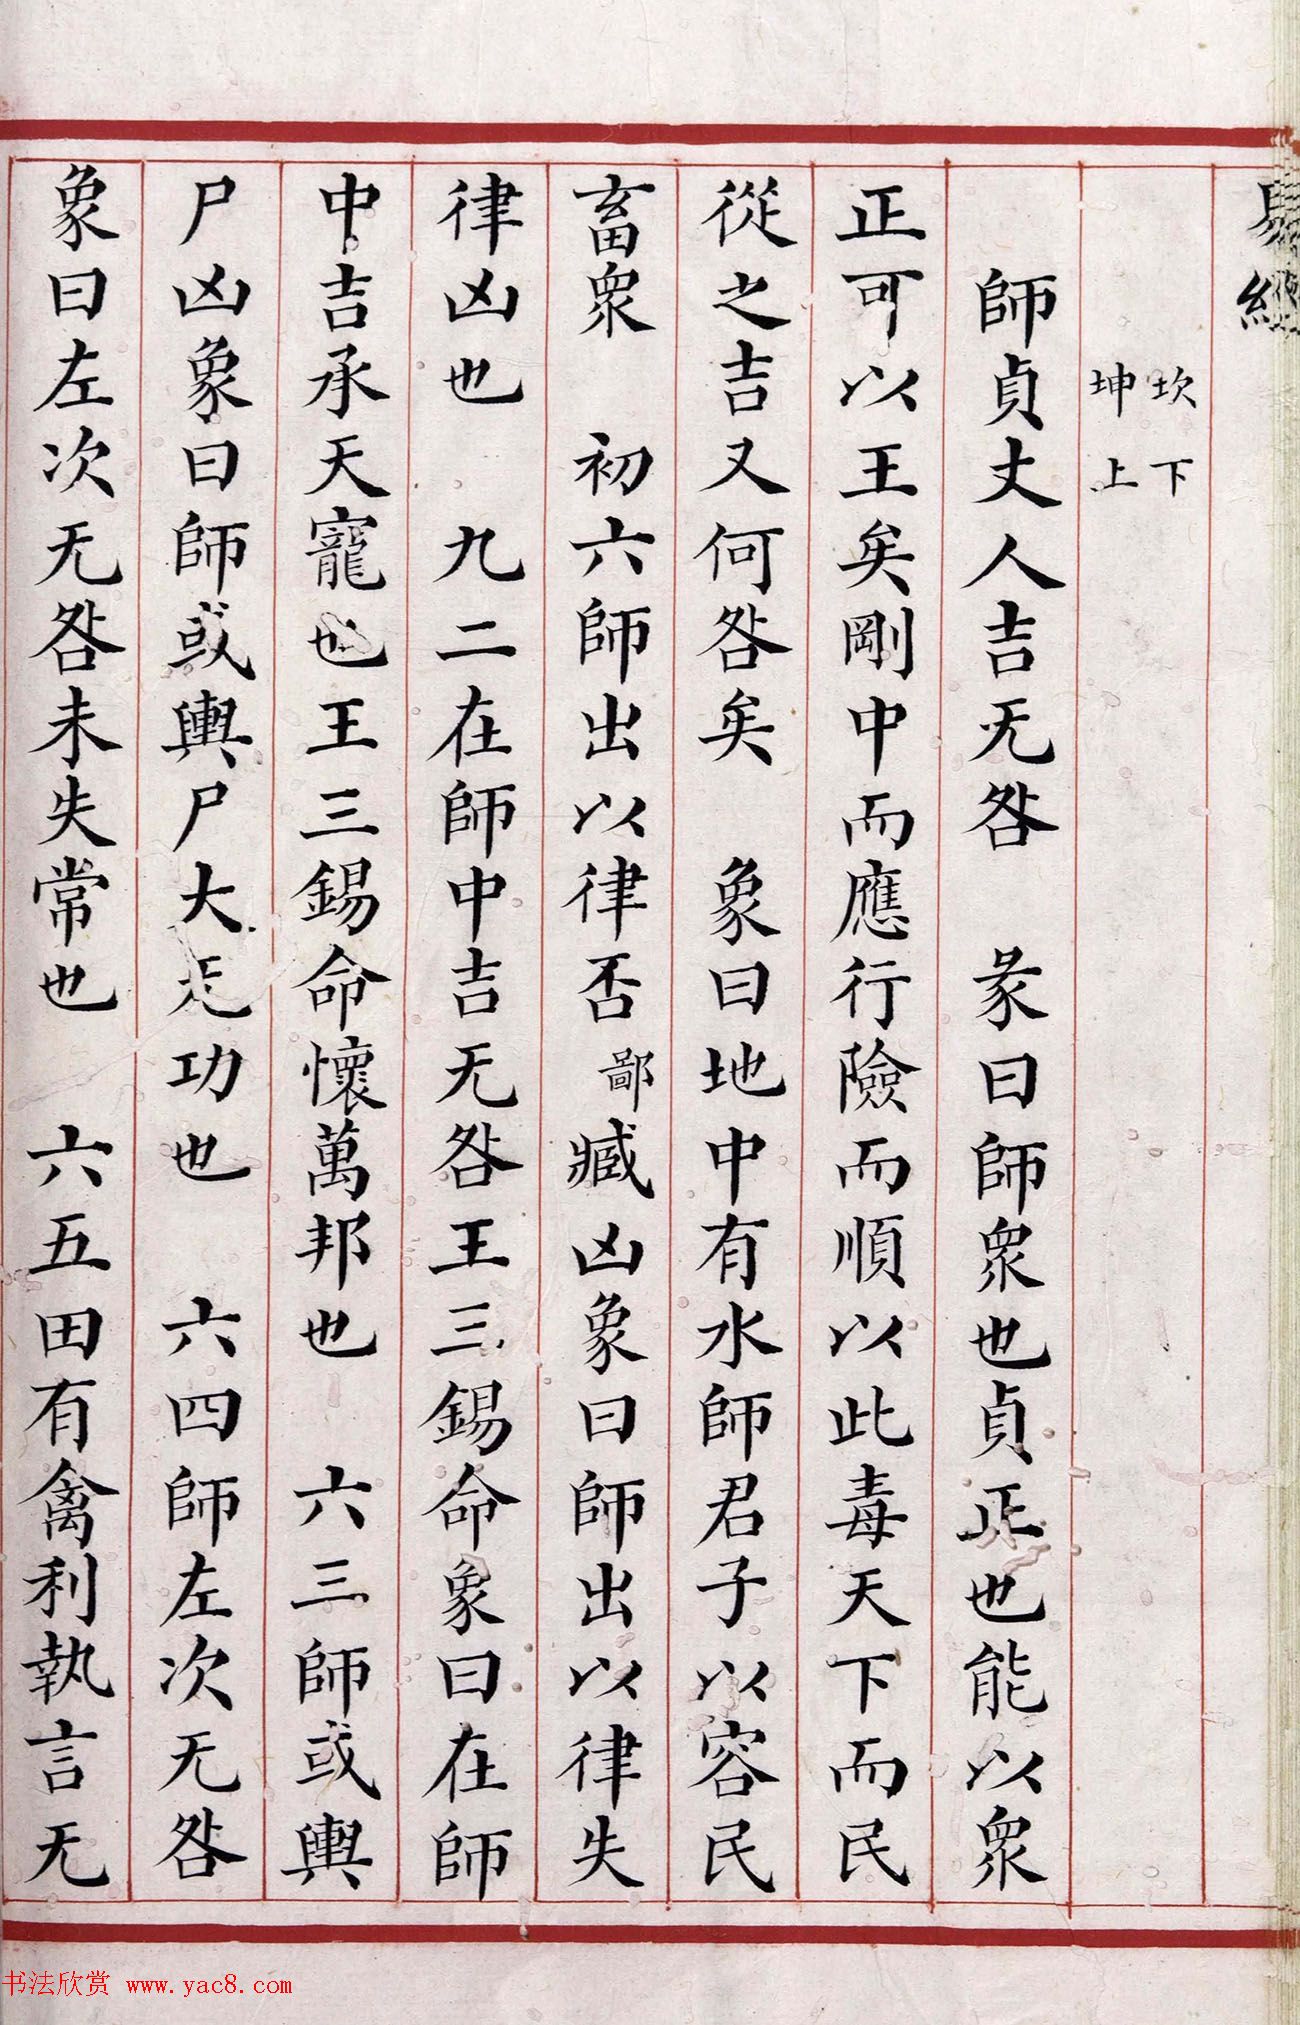 易經
坎下
坤上
師貞丈人吉无咎　彖曰師衆也貞正也能以衆
正可以王矣剛中而應行險而順以此毒天下而民
從之吉又何咎矣　象曰地中有水師君子以容民
畜衆　初六師出以律否鄙臧凶象曰師出以律失
律凶也　九二在師中吉无咎王三錫命象曰在師
中吉承天寵也王三錫命懷萬邦也　六三師或輿
尸凶象曰師或輿尸大无功也　六四師左次无咎
象曰左次无咎未失常也　六五田有禽利執言无
书法欣赏 www.yac8.com